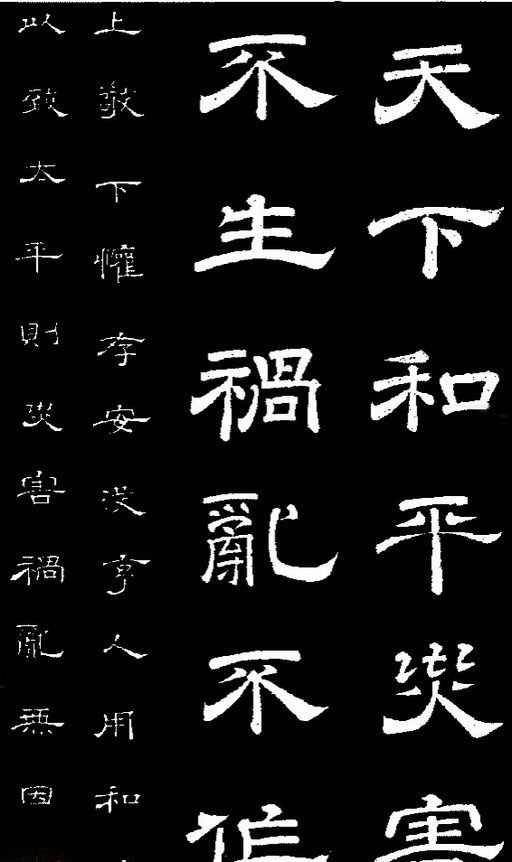 天下和平災害
不生禍亂不作
上敬下懽存安沒事人用和
以致太平則災害禍亂無因